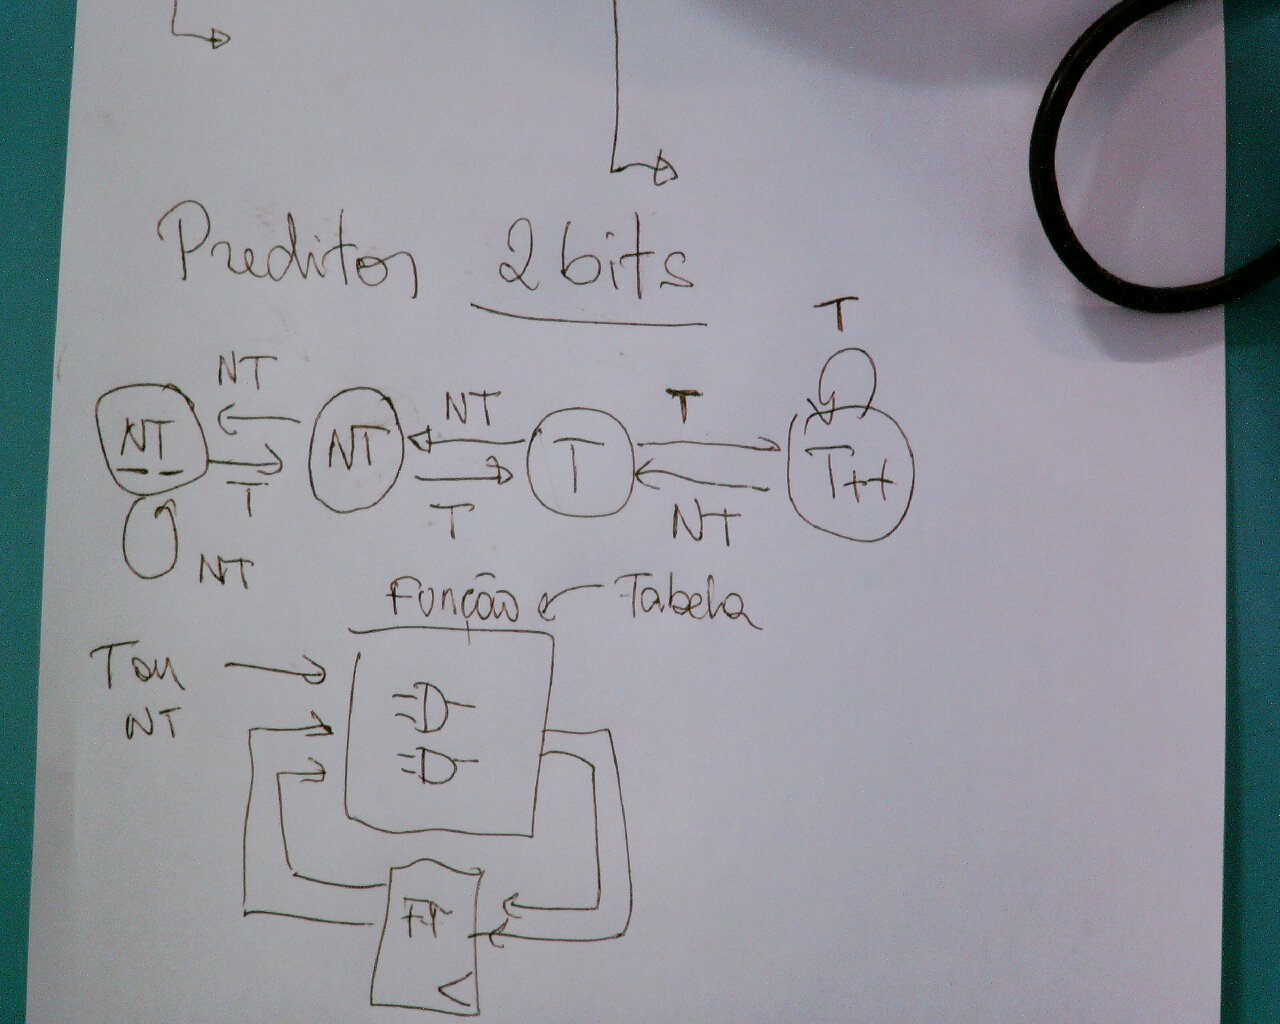 Preditor 2 bits
T
NT NT T
NT NT T T++
T T NT
NT
Função Tabela
T ou
NT
FF